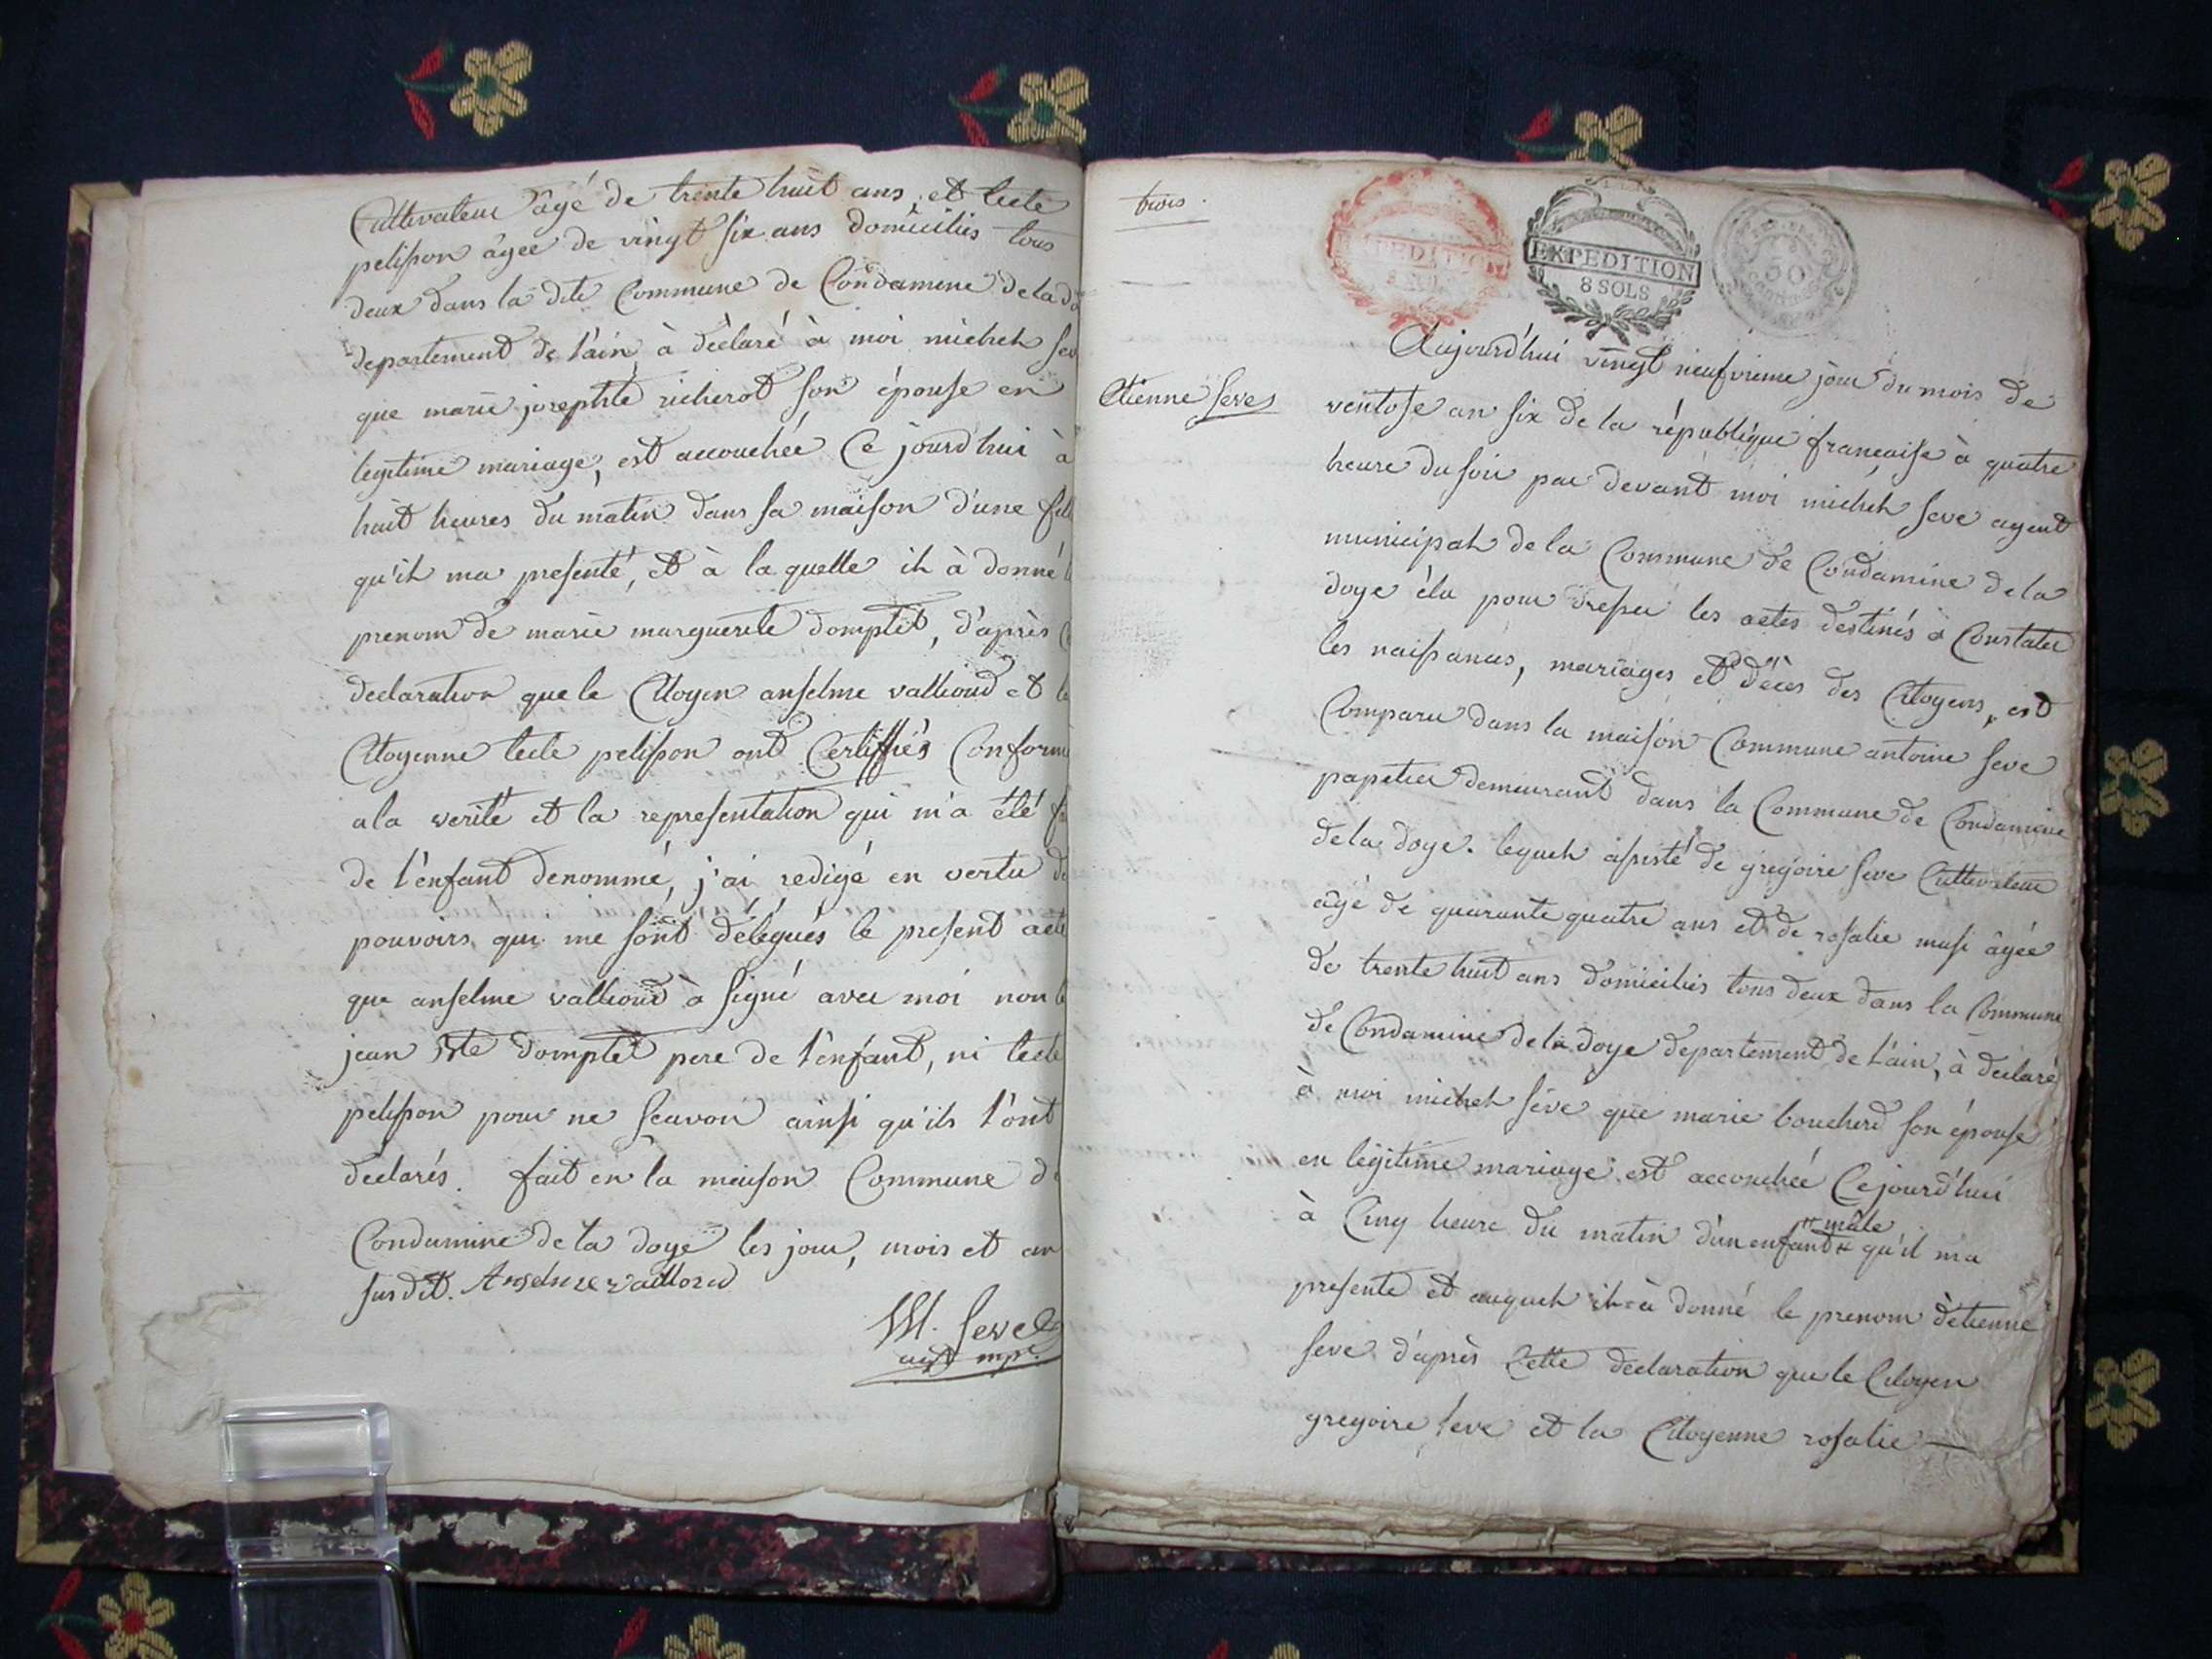 Cultivateur âgé de trente huit ans, et tecle
pelisson âgée de vingt six ans domiciliés tous
deux dans la dite Commune de Condamine dela do
departement de l'ain, à déclaré à moi michel sev
que marie josephte richerot son épouse en
legitime mariage, est accouchée Ce jourd'hui à
huit heures du matin dans sa maison d'une fill
qu'il ma presenté, et à la quelle il à donné l
prenom de marie marguerite domptet, d'après C
declaration que le Citoyen anselme vallioud et la
Citoyenne tecle pelisson ont Certiffiés Conform
a la verité et la representation qui m'a été f
de l'enfant denommé, j'ai redigé en vertu de
pouvoirs qui me sont délégués le present acte
que anselme vallioud à signé avec moi non l
jean Bte domptet pere de l'enfant, ni tecle
pelisson pour ne scavoir ainsi qu'ils l'ont
declarés. fait en la maison Commune de
Condamine de la doye les jour, mois et an
susdit. Anselme vailloud
M. Seve
agt mpl.
trois.
EXPEDITION
8 SOLS
EXPEDITION
8 SOLS
50
Etienne Seve
Aujourd'hui vingt neufvieme jour du mois de
ventose an six de la république francaise à quatre
heure du soir par devant moi michel seve agent
municipal de la Commune de Condamine de la
doye élu pour dresser les actes destinés à Constater
les naissances, mariages et décès des Citoyens, est
Comparu dans la maison Commune antoine seve
papetier demeurant dans la Commune de Condamine
de la doye. lequel assisté de gregoire seve Cultivateur
âgé de quarante quatre ans et de rosalie musi âgée
de trente huit ans domiciliés tous deux dans la Commune
de Condamine de la doye departement de l'ain, à declaré
à moi michel séve que marie boucherd son épouse
en légitime mariage est accouchée Cejourd'hui
à Cinq heure du matin d'un enfant mâle qu'il ma
presenté et auquel il a donné le prenom d'étienne
seve d'après Cette declaration que le Citoyen
gregoire seve et la Citoyenne rosalie